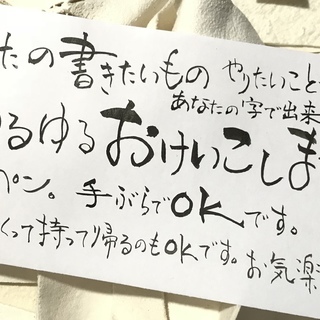 たの書きたいもの やりたいこと
あなたの字で出来
るゆるおけいこしま
ペン。手ぶらでOKです。
くって持って帰るのもOKです。お気楽